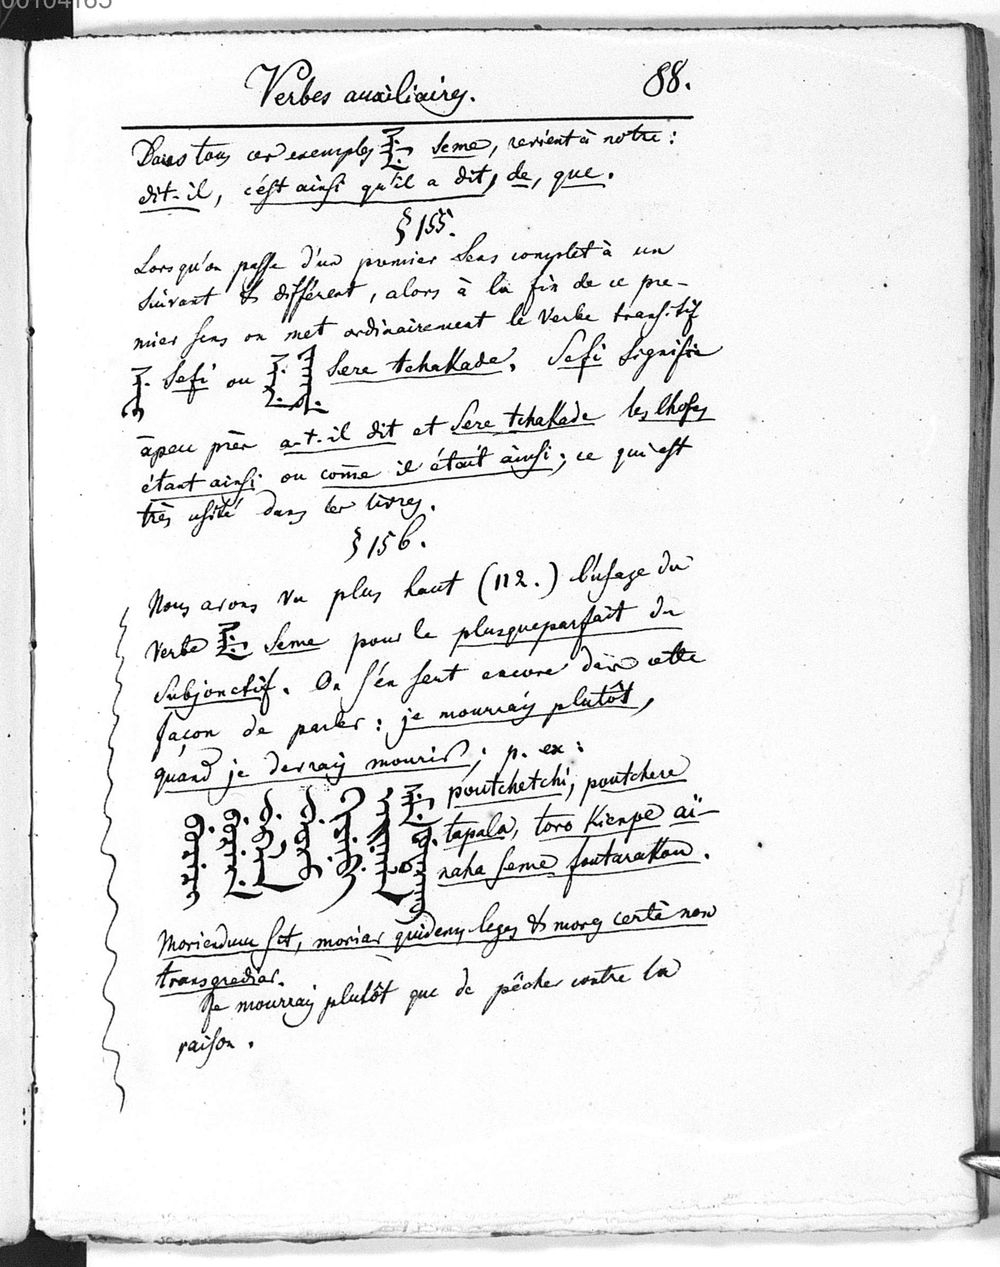 00104165
Verbes auxiliaires. 88.
Dans tous ces exemples ᠰᡝᠮᡝ seme, revient à notre:
dit-il, c'est ainsi qu'il a dit, de, que.
§ 155.
Lorsqu'on passe d'un premier sens complet à un
suivant & différent, alors à la fin de ce pre-
mier sens on met ordinairement le verbe transitif
ᠰᡝᡶᡳ sefi ou ᠰᡝᡵᡝ ᠵᠠᡴᠠᡩᡝ sere tchakade. Sefi signifie
àpeu près a-t-il dit et sere tchakade les choses
étant ainsi ou come il était ainsi; ce qui est
très usité dans les livres.
§ 156.
Nous avons vu plus haut (112.) l'usage du
verbe ᠰᡝᠮᡝ seme pour le plusqueparfait du
subjonctif. On s'en sert encore dans cette
façon de parler: je mourrais plutôt,
quand je devrais mourir; p. ex:
poutchetchi, poutchere
tapala, toro kienpe aï-
naha seme foutarakou.
Moriendum sit, moriar quidem, leges & mores certè non
transgrediar.
Je mourrais plutôt que de pêcher contre la
raison.